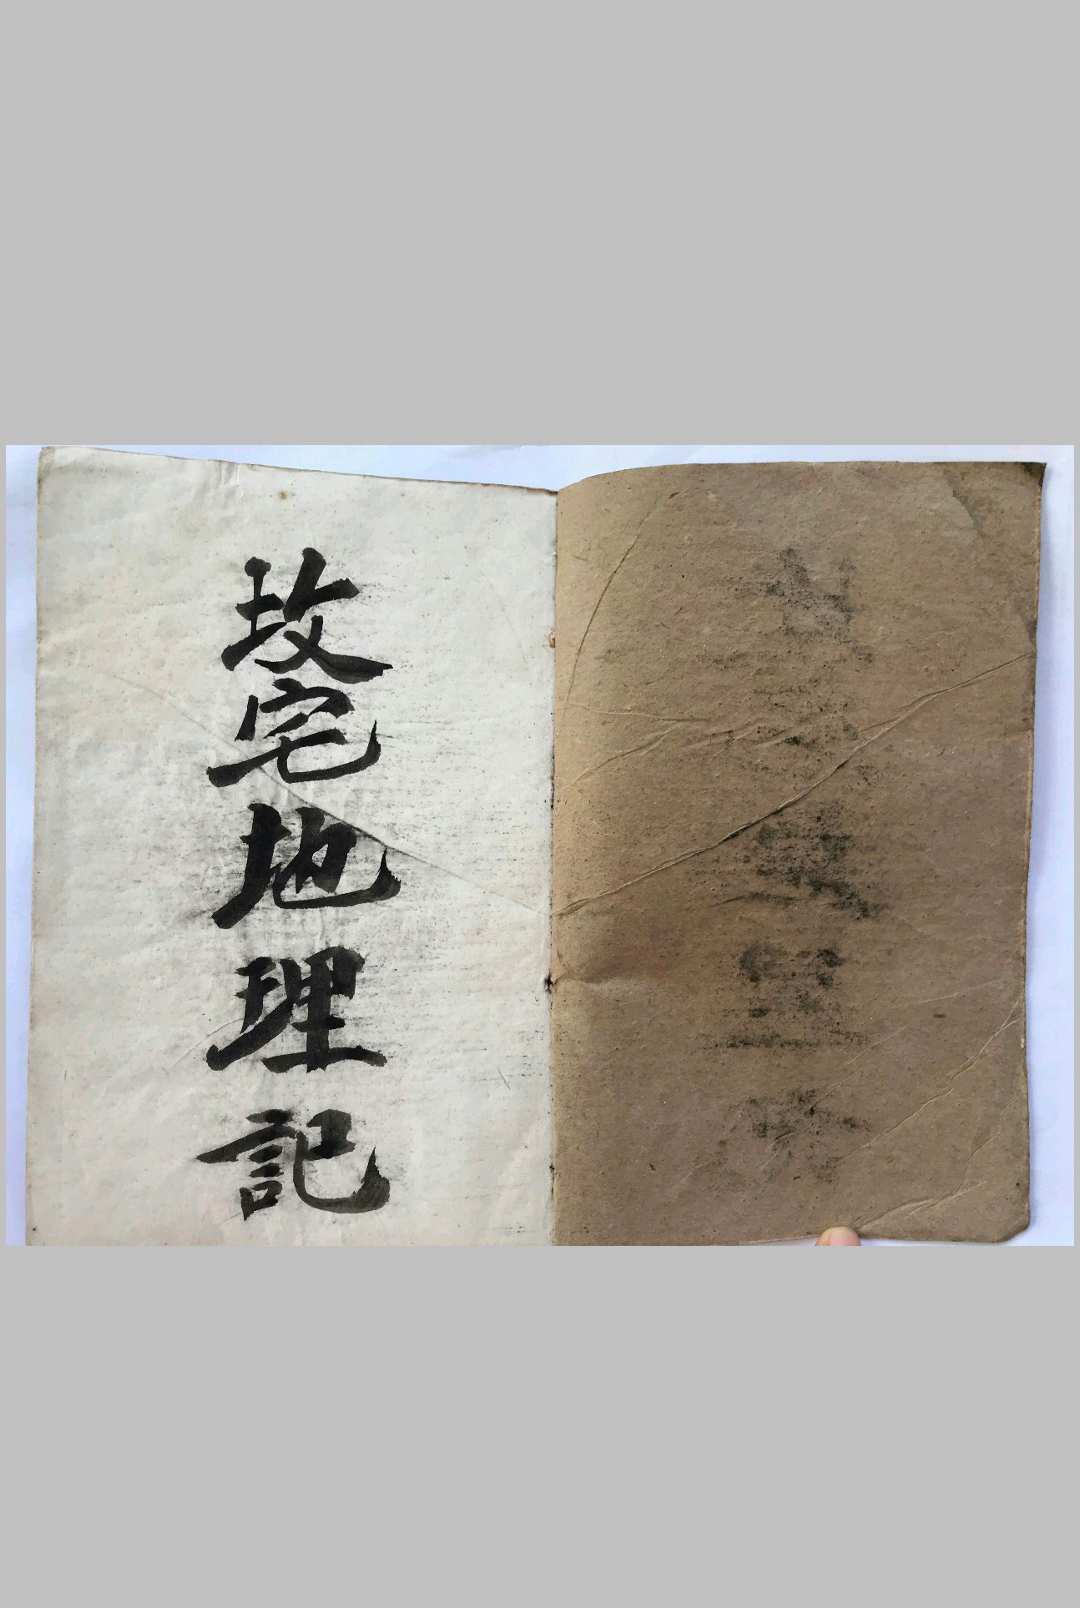 玫宅地理記